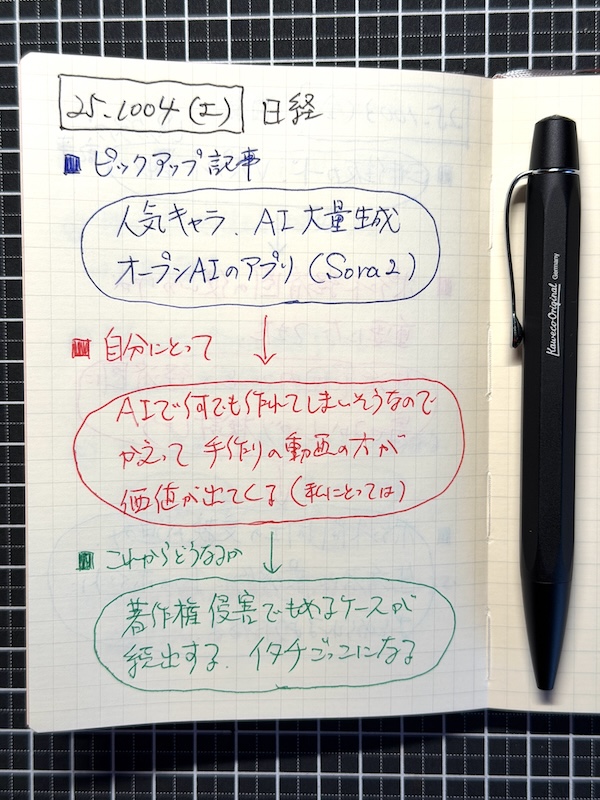 25.1004(土) 日経
■ピックアップ記事
人気キャラ、AI大量生成
オープンAIのアプリ(Sora2)
■自分にとって
AIで何でも作れてしまいそうなので
かえって手作りの動画の方が
価値が出てくる(私にとっては)
■これからどうなるか
著作権侵害でもめるケースが
続出する、イタチごっこになる
Kaweco-Original Germany